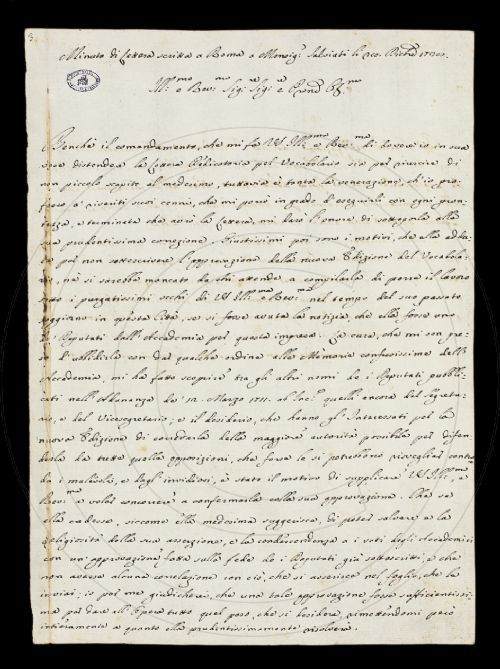 Minuta di Lettera scritta a Roma a Monsig.r Salviati li 20. Dicre 1720.
Ill.mo e Rev.mo Sig.re Sig.re e Pron. Col.mo
Benchè il comandamento, che mi fa VS Ill.ma e Rev.ma di dover io in sua
vece distendere la Lettera Dedicatoria pel Vocabolario sia per riuscire di
non piccolo scapito al medesimo, tuttavia è tanta la venerazione, ch'io pro-
fesso a' riveriti suoi cenni, che mi porrò in grado d'eseguirli con ogni pron-
tezza, e terminata che avrò la Lettera, mi darò l'onore di sottoporla alla
sua prudentissima correzione. Giustissimi poi sono i motivi, che ella adduce
per non sottoscrivere l'approvazione della nuova Edizione del Vocabola-
rio, nè si sarebbe mancato da chi attende a compilarlo di porre il lavoro
sotto i purgatissimi occhi di VS Ill.ma e Rev.ma nel tempo del suo passato
soggiorno in questa Città, se si fosse avuta la notizia, che ella fosse uno
de' Deputati dall'Accademia per questa impresa. La cura, che mi son pre-
so d'ubbidirla con dar qualche ordine alle Memorie confusissime dell'
Accademia, mi ha fatto scoprire tra gli altri nomi de i Deputati pubbli-
cati nell'Adunanza de' 12. Marzo 1711. al Inc.e quelli ancora del Segreta-
rio, e del Vicesegretario, e il desiderio, che hanno gl'Interessati per la
nuova Edizione di corredarla della maggiore autorità possibile per difen-
derla da tutte quelle opposizioni, che forse le si potrebbero risvegliar contro
da i malevoli, e dagl'invidiosi, è stato il motivo di supplicare VS Ill.ma e
Rev.ma a voler concorrere a confermarla colla sua approvazione. Che se
ella credesse, siccome ella medesima suggerisce, di poter salvare e la
religiosità della sua asserzione, e la condiscendenza a i voti degli Accademici
con un'approvazione fatta sulla fede de i Deputati già sottoscritti, e che
non avesse alcuna correlazione con ciò, che si asserisce nel foglio, che le
inviai; io per me giudicherei, che una tale approvazione fosse sufficientissi-
ma per dare all'Opera tutto quel peso, che si desidera, rimettendomi però
interamente a quanto ella prudentissimamente risolverà.